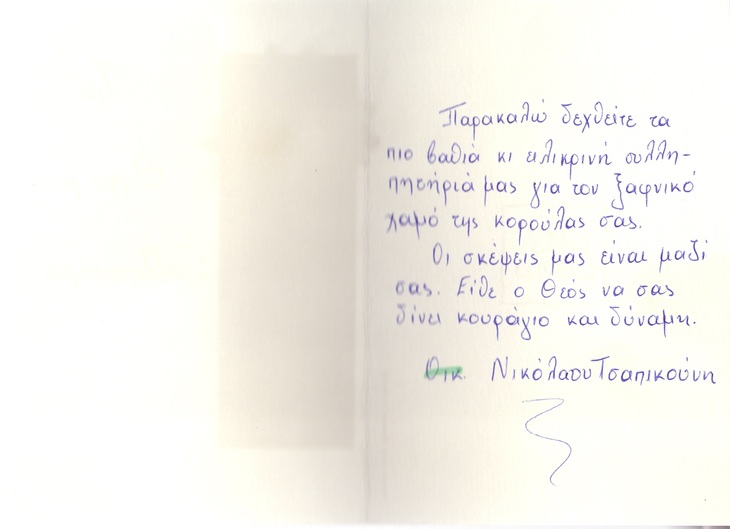 Παρακαλώ δεχθείτε τα
πιο βαθιά κι ειλικρινή συλλη-
πητήριά μας για τον ξαφνικό
χαμό της κορούλας σας.
Οι σκέψεις μας είναι μαζί
σας. Είθε ο Θεός να σας
δίνει κουράγιο και δύναμη.
Οικ. Νικόλαου Τσαπικούνη